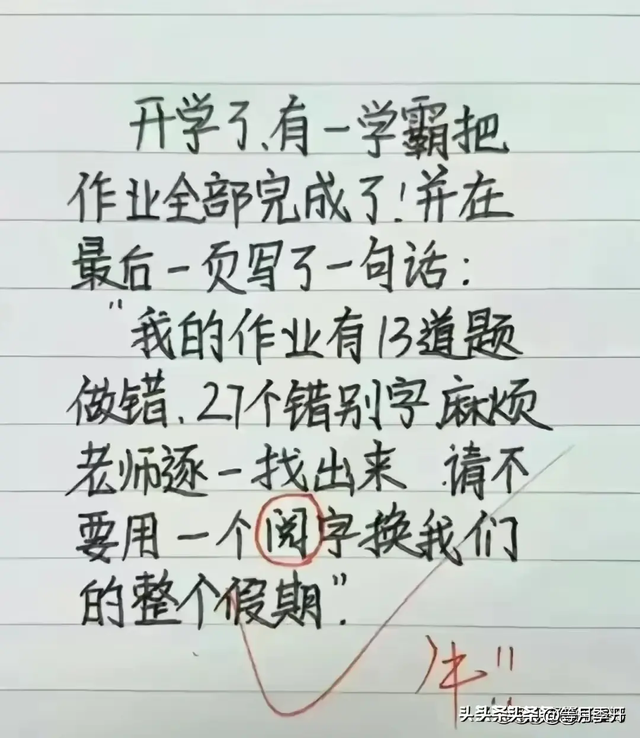 开学了、有一学霸把
作业全部完成了！并在
最后一页写了一句话：
“我的作业有13道题
做错、27个错别字麻烦
老师逐一找出来 请不
要用一个阅字换我们
的整个假期”.
牛!!